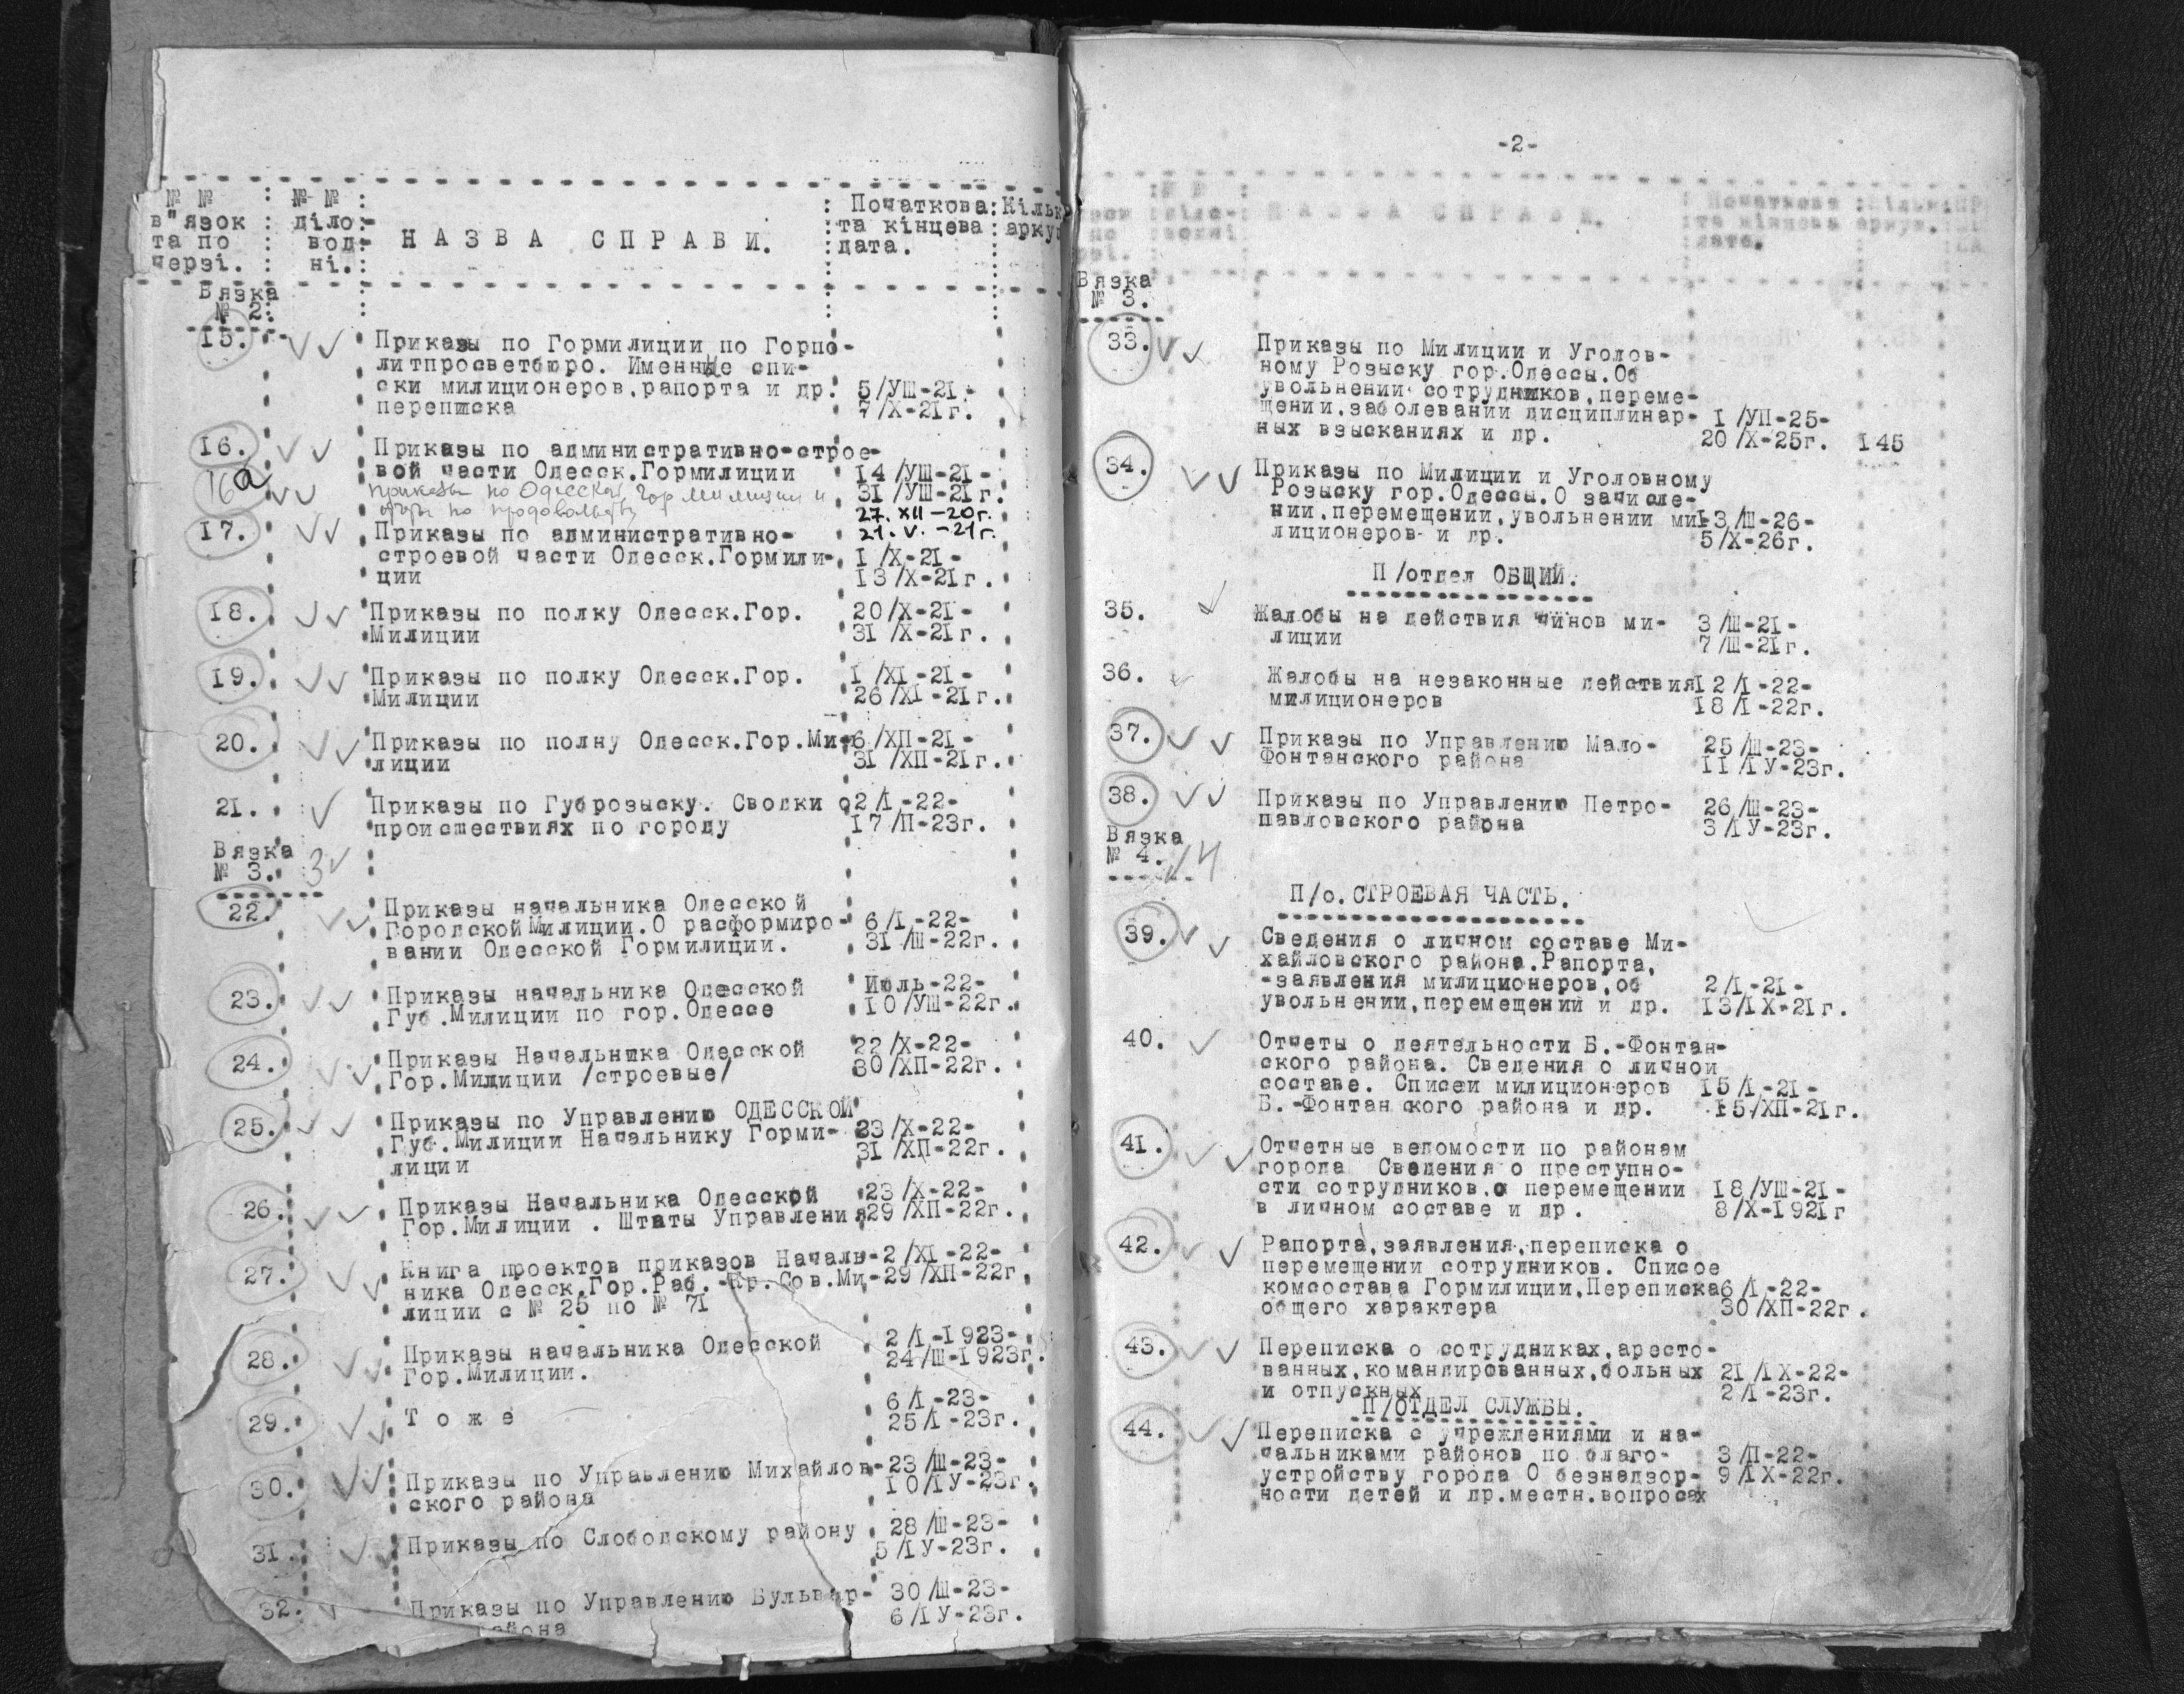 № № : № № :
в"язок : діло- : Н А З В А С П Р А В И. : Початкова : Кільк
та по : вод- : та кінцева : аркуш
черзі. : ні. : дата.
Вязка
№ 2.
15. Приказы по Гормилиции по Горпо-
литпросветбюро. Именные спи-
ски милиционеров,рапорта и др. 5/УШ-21-
переписка 7/Х-21г.
16. Приказы по административно-строе-
вой части Одесск.Гормилиции 14/УШ-21-
31/УШ-21г.
16а Приказы по Одесской гор милиции и
по 27.XII-20г.
21.V.-21г.
17. Приказы по административно-
строевой части Одесск.Гормили- 1/Х-21-
ции 13/Х-21г.
18. Приказы по полку Одесск.Гор. 20/Х-21-
Милиции 31/Х-21г.
19. Приказы по полку Одесск.Гор. 1/ХІ-21-
Милиции 26/ХІ-21г.
20. Приказы по полну Одесск.Гор.Ми- 6/ХП-21-
лиции 31/ХП-21г.
21. Приказы по Губрозыску. Сводки о 2/1-22-
происшествиях по городу 17/П-23г.
Вязка
№ 3. 3
22. Приказы начальника Одесской
Городской Милиции.О расформиро- 6/1-22-
вании Одесской Гормилиции. 31/Ш-22г.
23. Приказы начальника Одесской Июль-22-
Губ.Милиции по гор.Одессе 10/УШ-22г.
24. Приказы Начальника Одесской 22/Х-22-
Гор.Милиции /строевые/ 30/ХП-22г.
25. Приказы по Управлению ОДЕССКОЙ
Губ.Милиции Начальнику Горми- 23/Х-22-
лиции 31/ХП-22г.
26. Приказы Начальника Одесской 23/Х-22-
Гор.Милиции . Штаты Управления 29/ХП-22г.
27. Книга проектов приказов Началь- 2/ХІ-22-
ника Одесск.Гор.Раб.-Кр.Сов.Ми- 29/ХП-22г
лиции с № 25 по № 71
28. Приказы начальника Одесской 2/1-1923-
Гор.Милиции. 24/Ш-1923г.
29. Т о ж е 6/1-23-
25/1-23г.
30. Приказы по Управлению Михайлов- 23/Ш-23-
ского района 10/1У-23г.
31. Приказы по Слободскому району 28/Ш-23-
5/1У-23г.
32. Приказы по Управлению Бульвар- 30/Ш-23-
айона 6/1У-23г.
-2-
Н А З В А С П Р А В И.
Вязка
№ 3.
33. Приказы по Милиции и Уголов-
ному Розыску гор.Одессы.Об
увольнении сотрудников,переме-
щении,заболевании дисциплинар- 1/УП-25-
ных взысканиях и др. 20/Х-25г. 145
34. Приказы по Милиции и Уголовному
Розыску гор.Одессы.О зачисле-
нии,перемещении,увольнении ми- 13/Ш-26-
лиционеров и др. 5/Х-26г.
П/отдел ОБЩИЙ.
35. Жалобы на действия чинов ми- 3/Ш-21-
лиции 7/Ш-21г.
36. Жалобы на незаконные действия 12/1-22-
милиционеров 18/1-22г.
37. Приказы по Управлению Мало- 25/Ш-23-
Фонтанского района 11/1У-23г.
38. Приказы по Управлению Петро- 26/Ш-23-
павловского района 3/1У-23г.
Вязка
№ 4. 4
П/о.СТРОЕВАЯ ЧАСТЬ.
39. Сведения о личном составе Ми-
хайловского района.Рапорта,
-заявления милиционеров,об 2/1-21-
увольнении,перемещений и др. 13/1Х-21г.
40. Отчеты о деятельности Б.-Фонтан-
ского района. Сведения о личном
составе. Списки милиционеров 15/1-21-
Б.-Фонтанского района и др. 15/ХП-21г.
41. Отчетные ведомости по районам
города Сведения о преступно-
сти сотрудников,о перемещении 18/УШ-21-
в личном составе и др. 8/Х-1921г
42. Рапорта,заявления,переписка о
перемещении сотрудников. Списое
комсостава Гормилиции.Переписка 6/1-22-
общего характера 30/ХП-22г.
43. Переписка о сотрудниках,аресто-
ванных,командированных,больных 21/1Х-22-
и отпускных 2/1-23г.
П/ОТДЕЛ СЛУЖБЫ.
44. Переписка с учреждениями и на-
чальниками районов по благо- 3/П-22-
устройству города О безнадзор- 9/1Х-22г.
ности детей и др.местн.вопросах